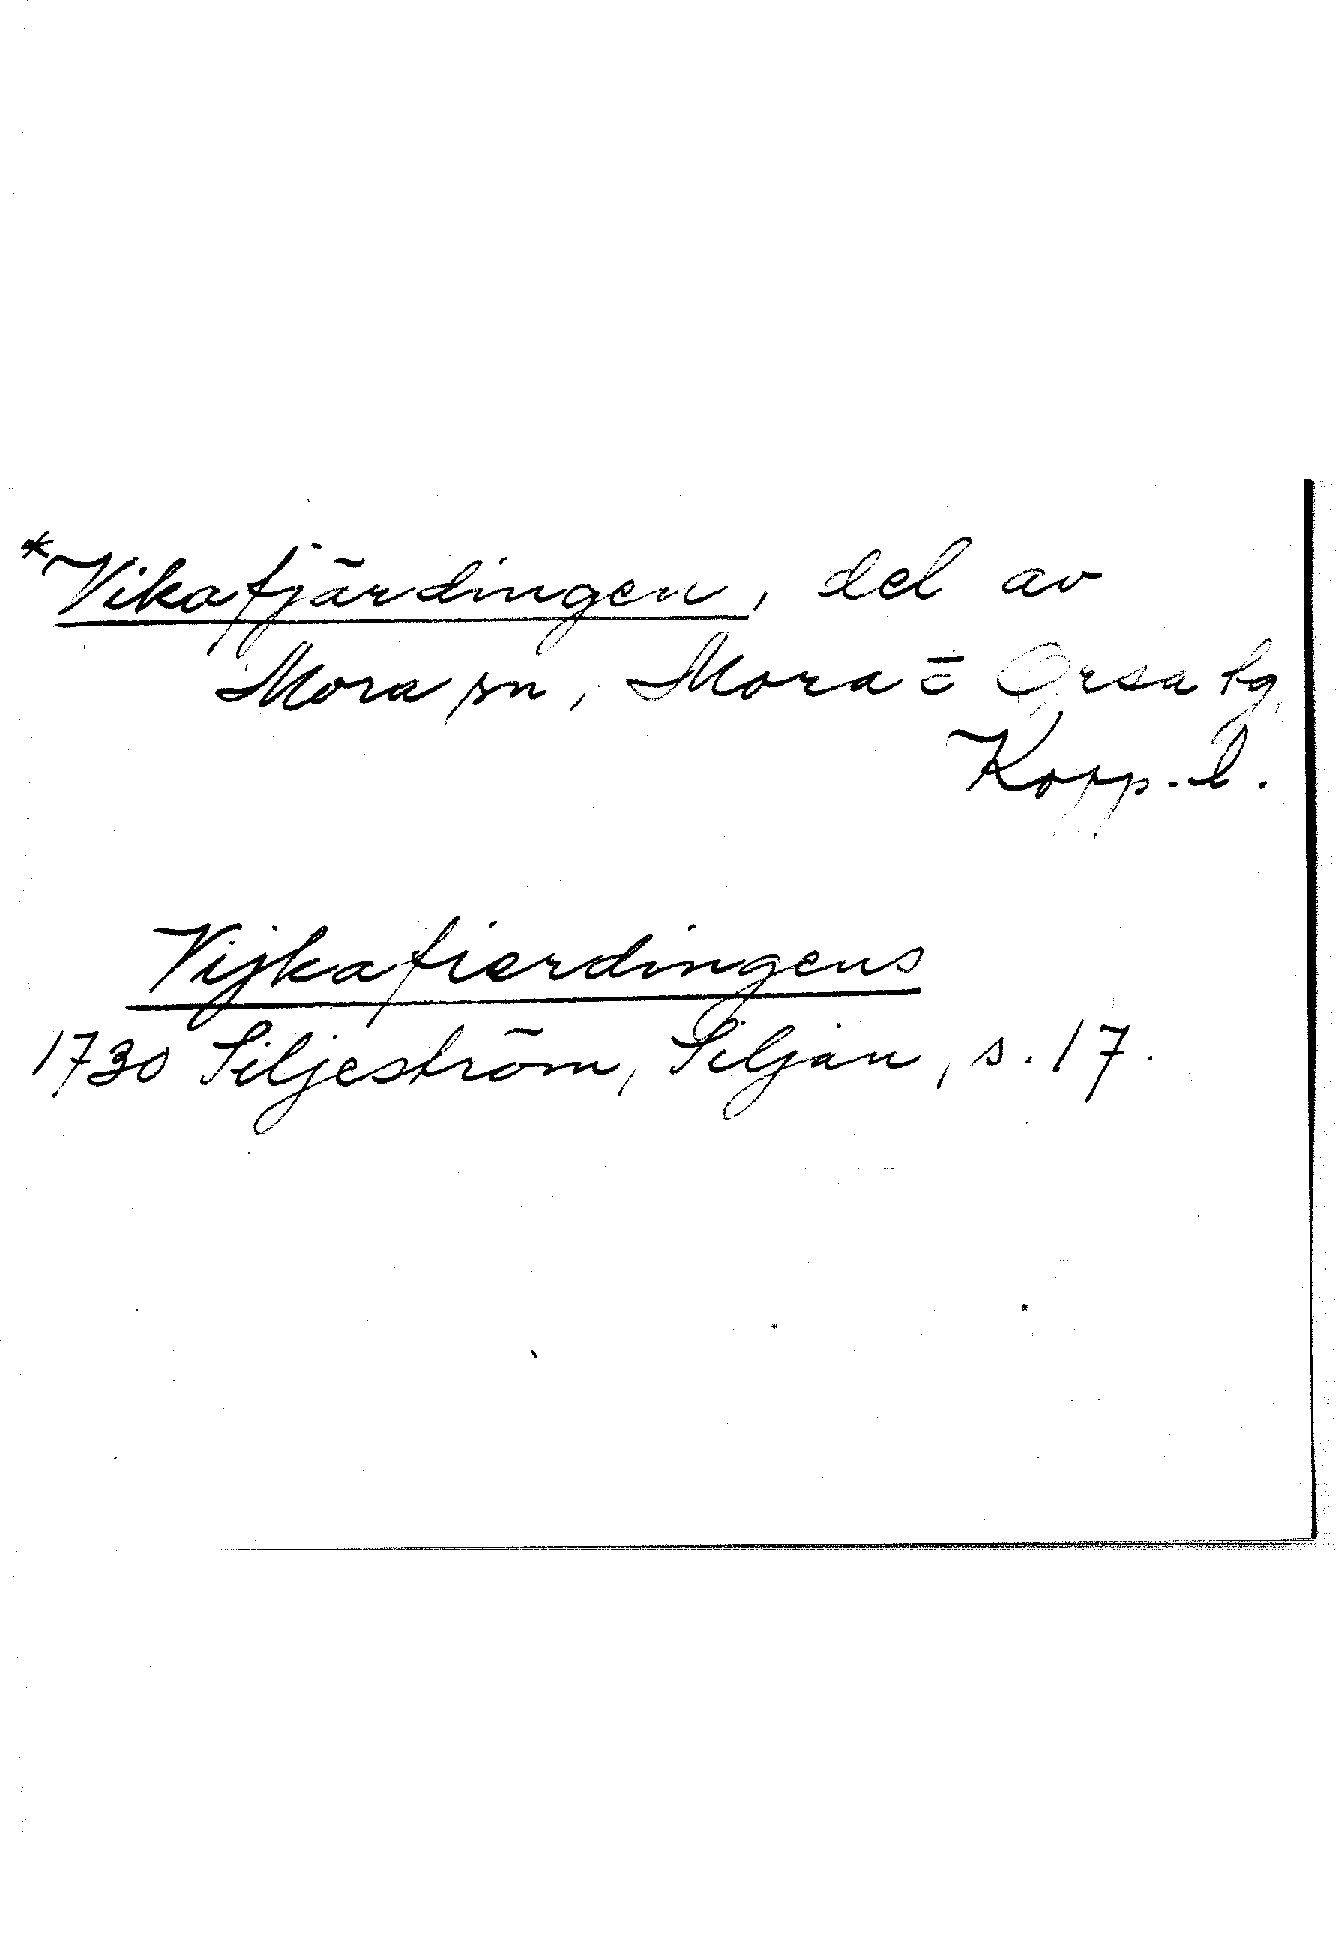 *Vikafjärdingen, del av
Mora sn, Mora o Orsa tg,
Kopp. l.
Vijkafierdingens
1730 Siljeström, Siljan, s. 17.